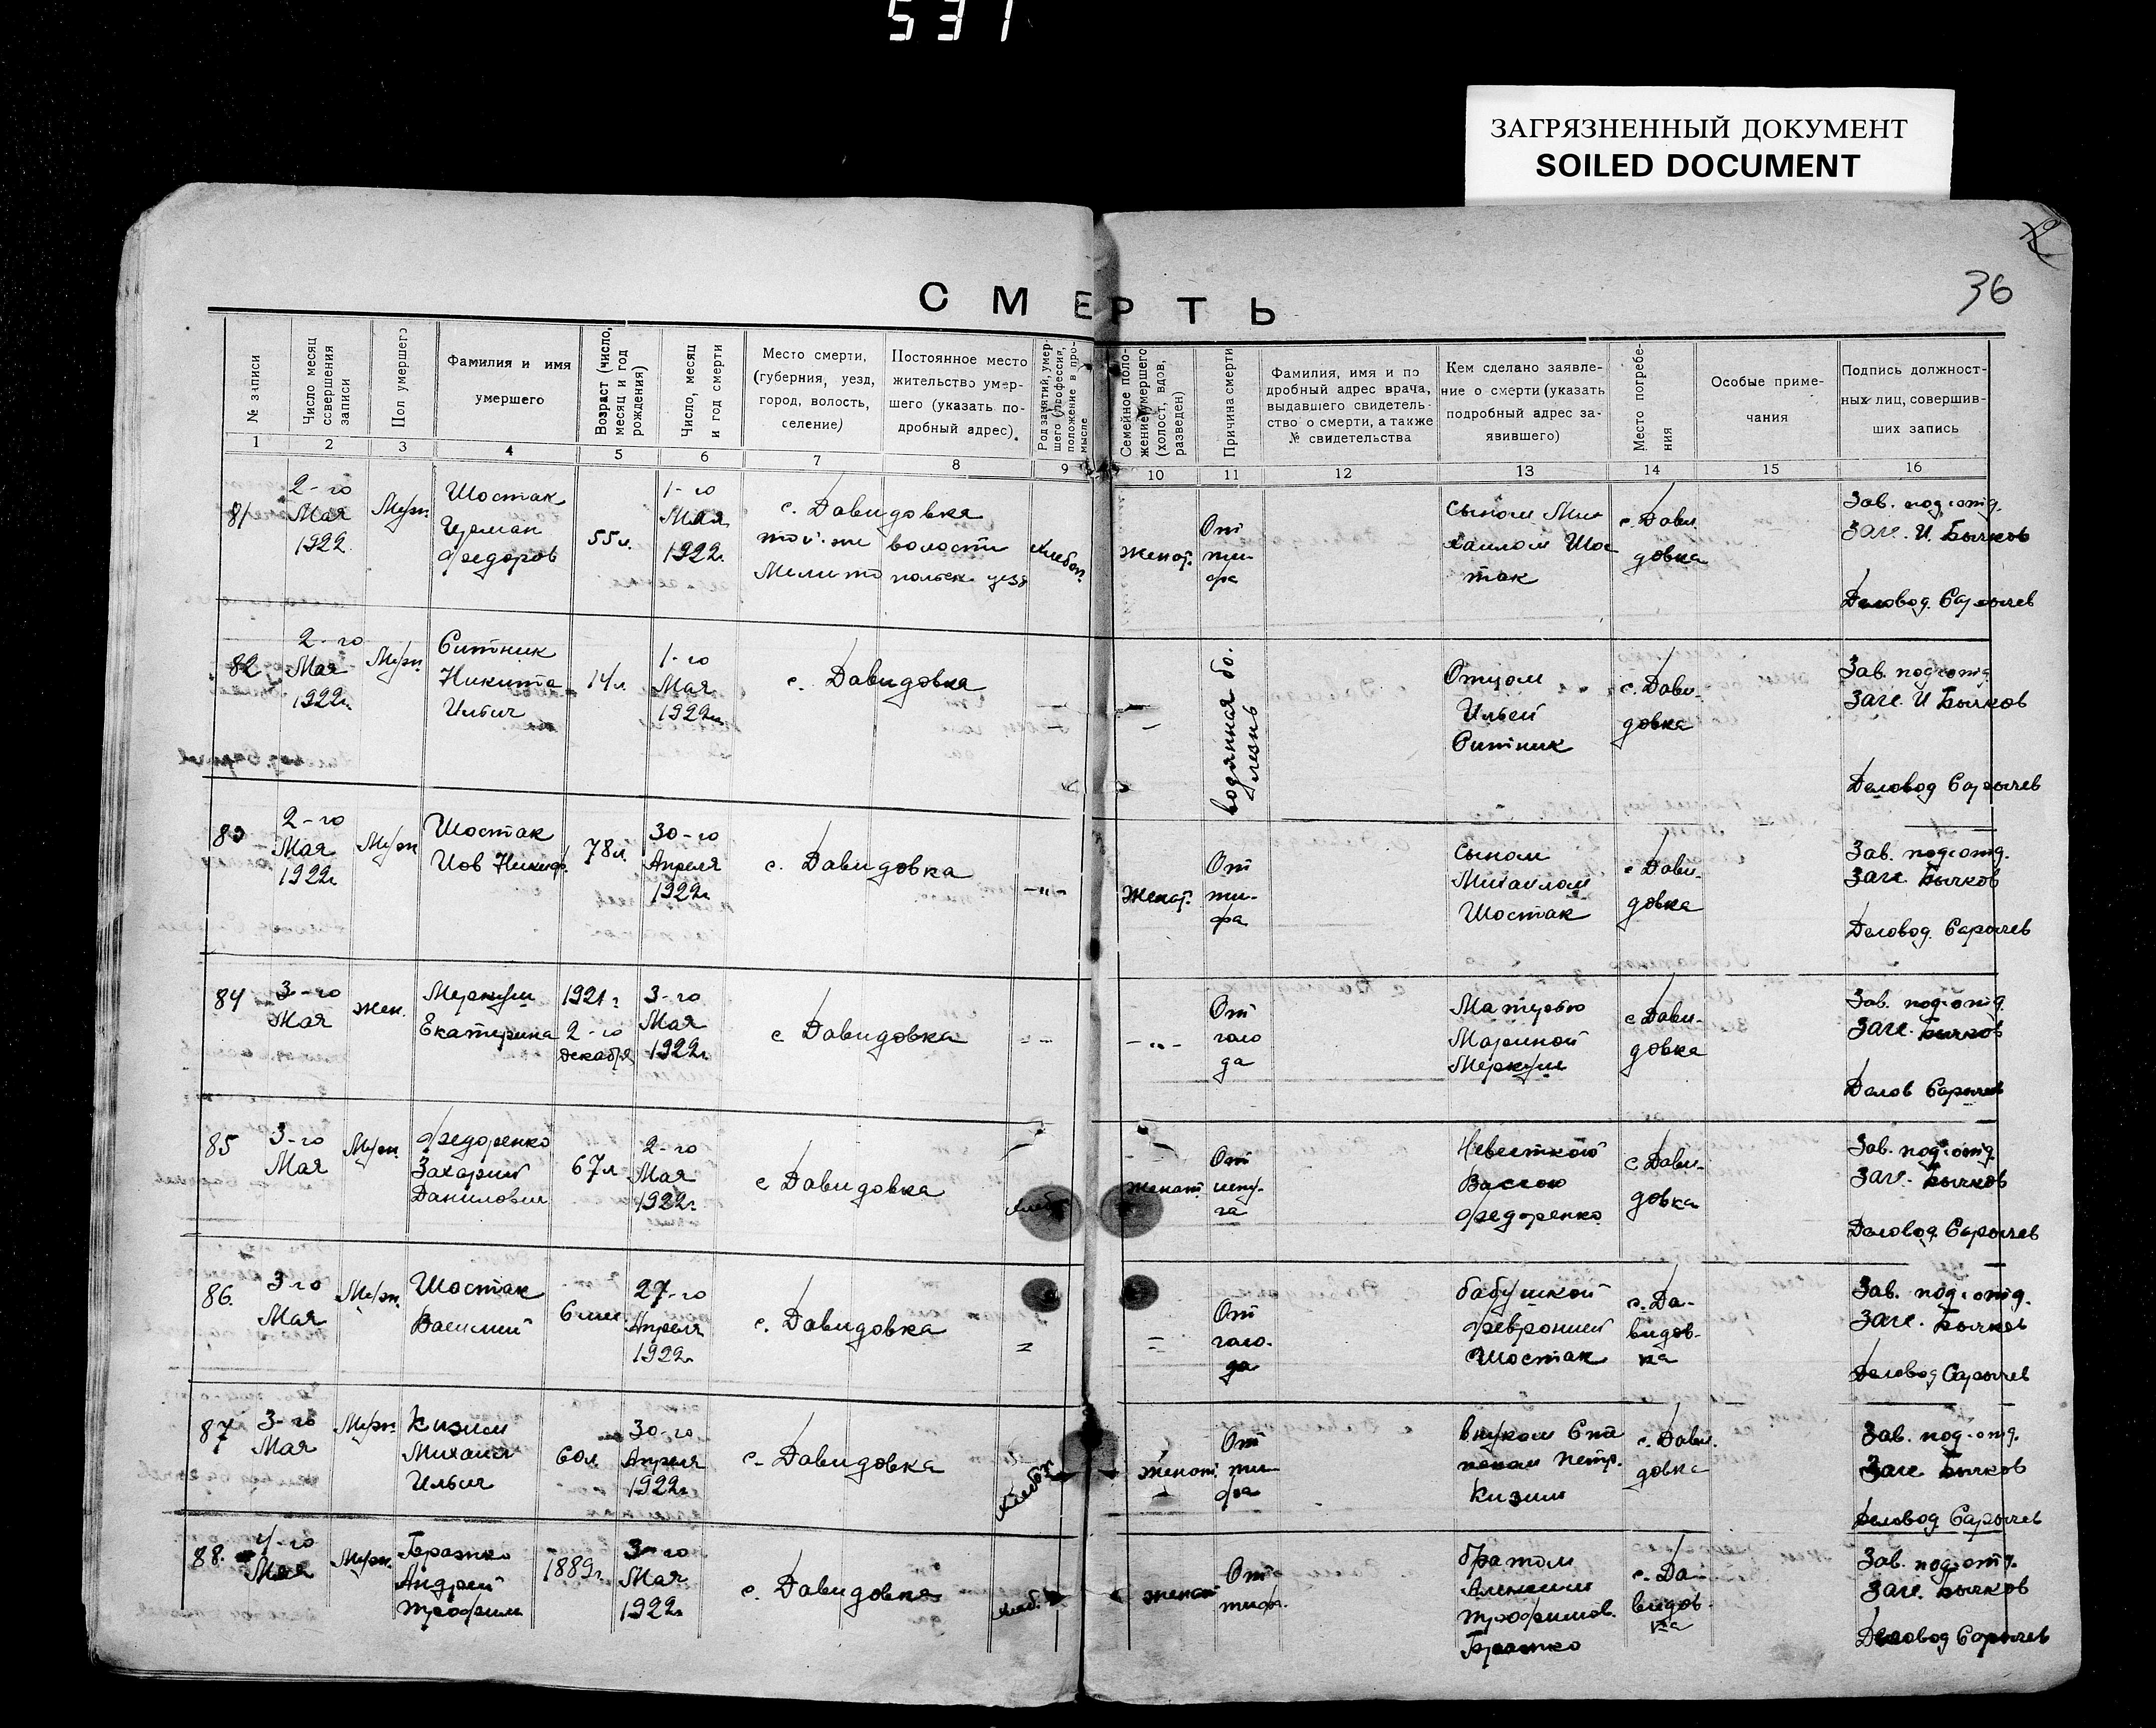 531
ЗАГРЯЗНЕННЫЙ ДОКУМЕНТ
SOILED DOCUMENT
36
СМЕРТЬ
№ записи
Число месяц совершения записи
Пол умершего
Фамилия и имя умершего
Возраст (число, месяц и год рождения)
Число, месяц и год смерти
Место смерти, (губерния, уезд, город, волость, селение)
Постоянное место жительство умершего (указать подробный адрес).
Род занятий, умершего (профессия, положение в промысле
Семейное положение умершего (холост, вдов, разведен)
Причина смерти
Фамилия, имя и подробный адрес врача, выдавшего свидетельство о смерти, а также № свидетельства
Кем сделано заявление о смерти (указать подробный адрес заявившего)
Место погребения
Особые примечания
Подпись должностных лиц, совершивших запись
1 2 3 4 5 6 7 8 9 10 11 12 13 14 15 16
81
2-го
Мая
1922
Муж.
Шостак
Федоров
55 л.
1-го
Мая
1922 г.
с. Давидовка
той-же волости
Мелитопольск. уезд
Хлебоп.
Женат.
От
ти-
фа
Сыном Ми-
хаилом Шос
так
с. Дави
довка
Зав. подотд.
Загс. И. Бычков
Деловод. Сарычев
82
2-го
Мая
1922 г.
Муж.
Ситник
Никита
Ильич
14 л.
1-го
Мая
1922 г.
с. Давидовка
водянная бо.
лезнь
Отцом
Ильей
Ситник
с. Дави-
довка
Зав. подотд
Загс. И Бычков
Деловод Сарычев
83
2-го
Мая
1922 г
Муж
Шостак
Иов Никиф.
78 л.
30-го
Апреля
1922 г.
с. Давидовка
-"-
Женат.
От
ти-
фа
Сыном
Михаилом
Шостак
с Дави-
довка
Зав. подотд.
Загс Бычков
Деловод. Сарычев
84
3-го
Мая
жен.
Екатерина
1921 г
2-го
декабря
3-го
Мая
1922 г.
с Давидовка
-"-
От
голо
да
Матерью
Мариной
с Дави-
довка
Зав. подотд
Загс. Бычков
Делов Сарычев
85
3-го
Мая
Муж.
Федоренко
Захарий
Данилович
67 л
2-го
Мая
1922 г.
с Давидовка
Женат
От
Невесткою
Федоренко
с Дави-
довка
Зав. подотд
Загс. Бычков
Деловод. Сарычев
86.
3 го
Мая
Муж.
Шостак
Василий
27-го
Апреля
1922 г.
с. Давидовка
=
=
От
голо-
да
бабушкой
Февронией
Шостак
с. Да-
видов-
ка
Зав. подотд.
Загс. Бычков
Деловод Сарычев
87
3-го
Мая
Муж.
Кизим
Михаил
Ильич
60 л
30-го
Апреля
1922 г.
с. Давидовка
Хлебоп
женат
От
ти-
фа
внуком Сте
паном Петр.
Кизим
с. Дави.
довка
Зав. подотд.
Загс Бычков
Деловод Сарычев
88.
4-го
Мая
Муж.
Андрей
Трофим
1889 г.
3-го
Мая
1922 г.
с. Давидовка
Хлеб.
женат
От
тифа.
братом
Алексеем
Трофимов.
с. Да-
видов-
ка
Зав. подотд.
Загс. Бычков
Деловод Сарычев